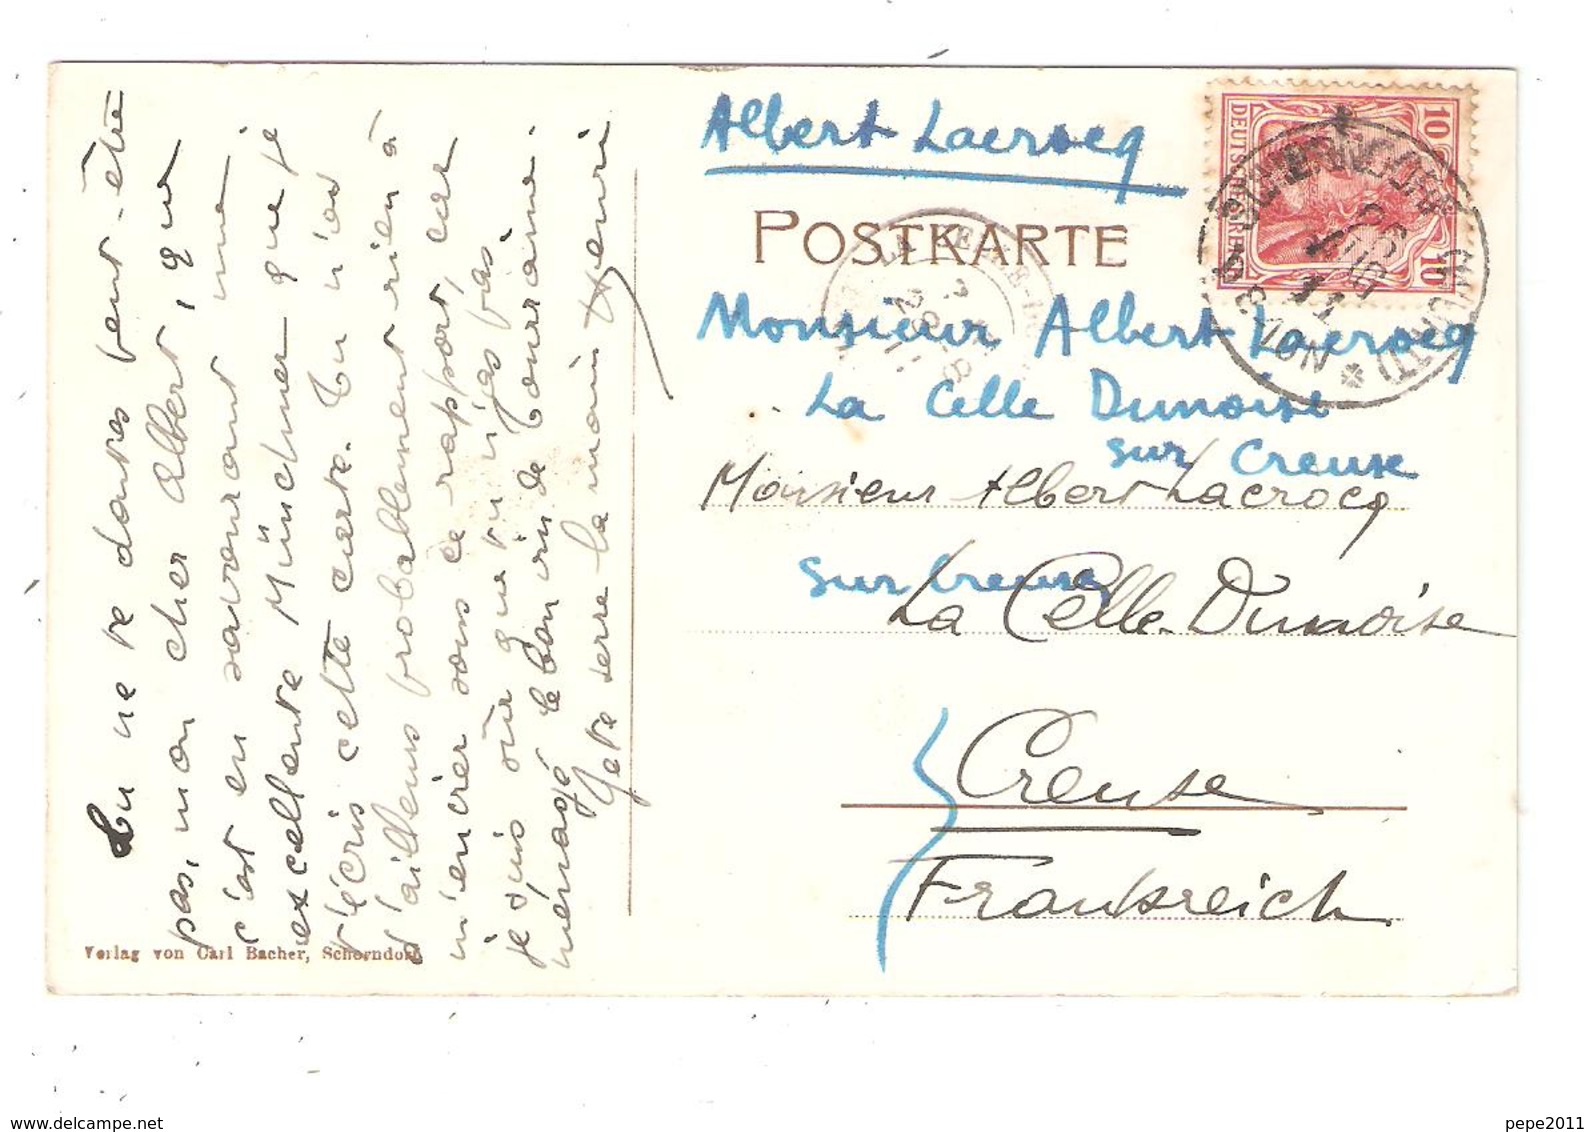 Tu ne te doutes peut-être
pas, mon cher Albert, que
c'est en savourant une
excellente Münchner que je
t'écris cette carte. Tu n'as
d'ailleurs probablement rien à
m'envier sous ce rapport, car
je suis sûr que tu n'as pas
ménagé le bon vin de Touraine.
Je te serre la main Henri
Verlag von Carl Bacher, Schorndorf
Albert Lacrocq
POSTKARTE
Monsieur Albert Lacrocq
La Celle Dunoise
sur Creuse
Monsieur Albert Lacrocq
sur Creuse
La Celle-Dunoise
Creuse
Frankreich
DEUTSCHES REICH
10
10
pepe2011
www.delcampe.net